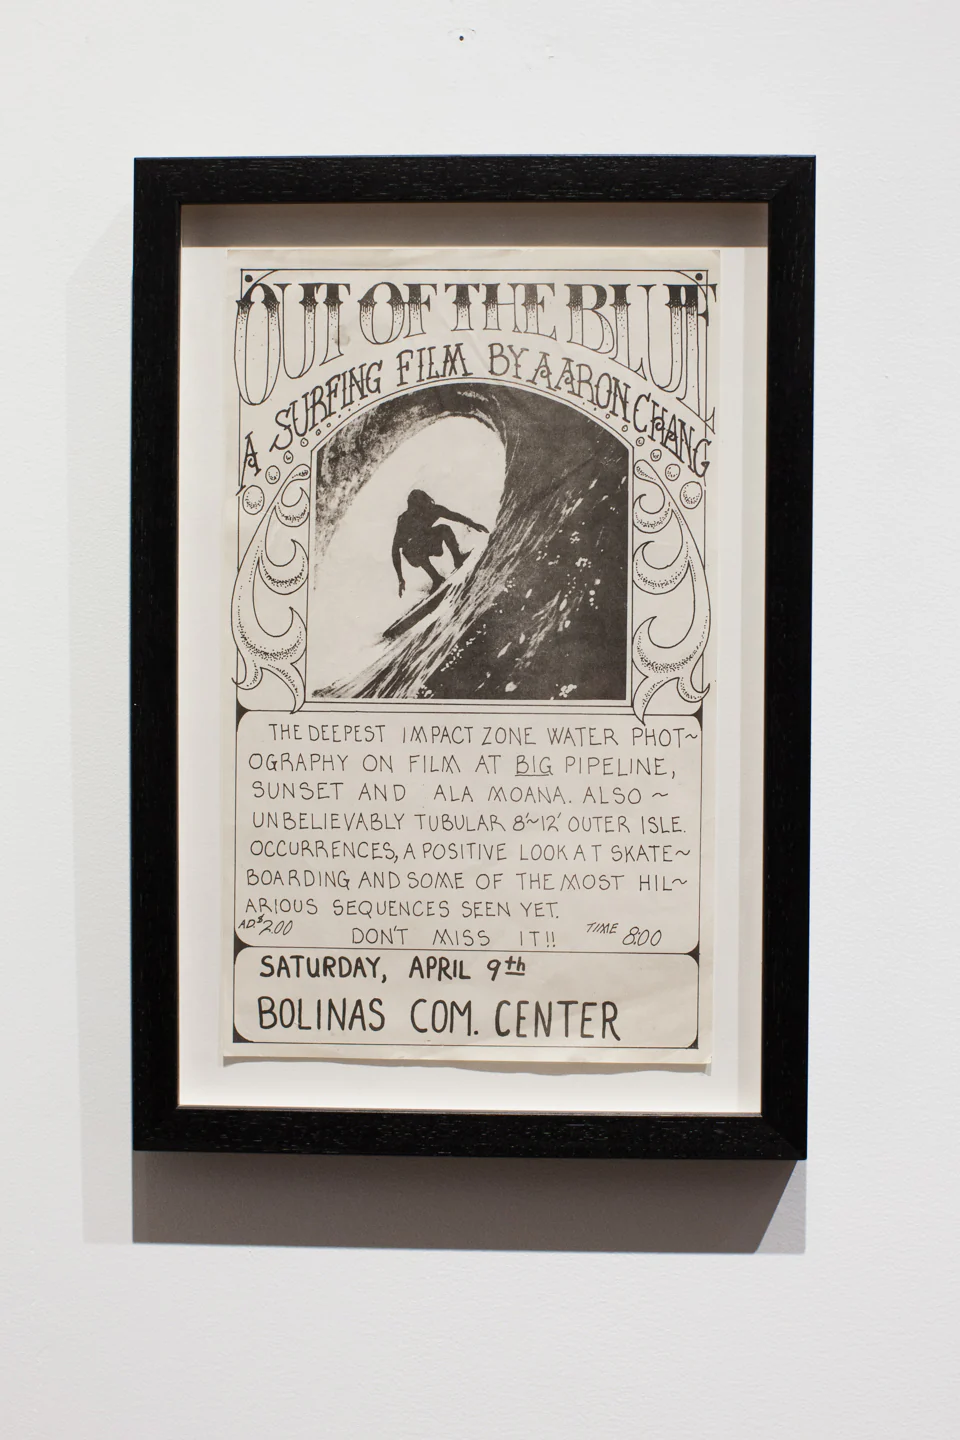 OUT OF THE BLUE
A SURFING FILM BY AARON CHANG
THE DEEPEST IMPACT ZONE WATER PHOT~
OGRAPHY ON FILM AT BIG PIPELINE,
SUNSET AND ALA MOANA. ALSO ~
UNBELIEVABLY TUBULAR 8'~12' OUTER ISLE.
OCCURRENCES, A POSITIVE LOOK AT SKATE~
BOARDING AND SOME OF THE MOST HIL~
ARIOUS SEQUENCES SEEN YET.
AD. $2.00 DON'T MISS IT!! TIME 8:00
SATURDAY, APRIL 9th
BOLINAS COM. CENTER